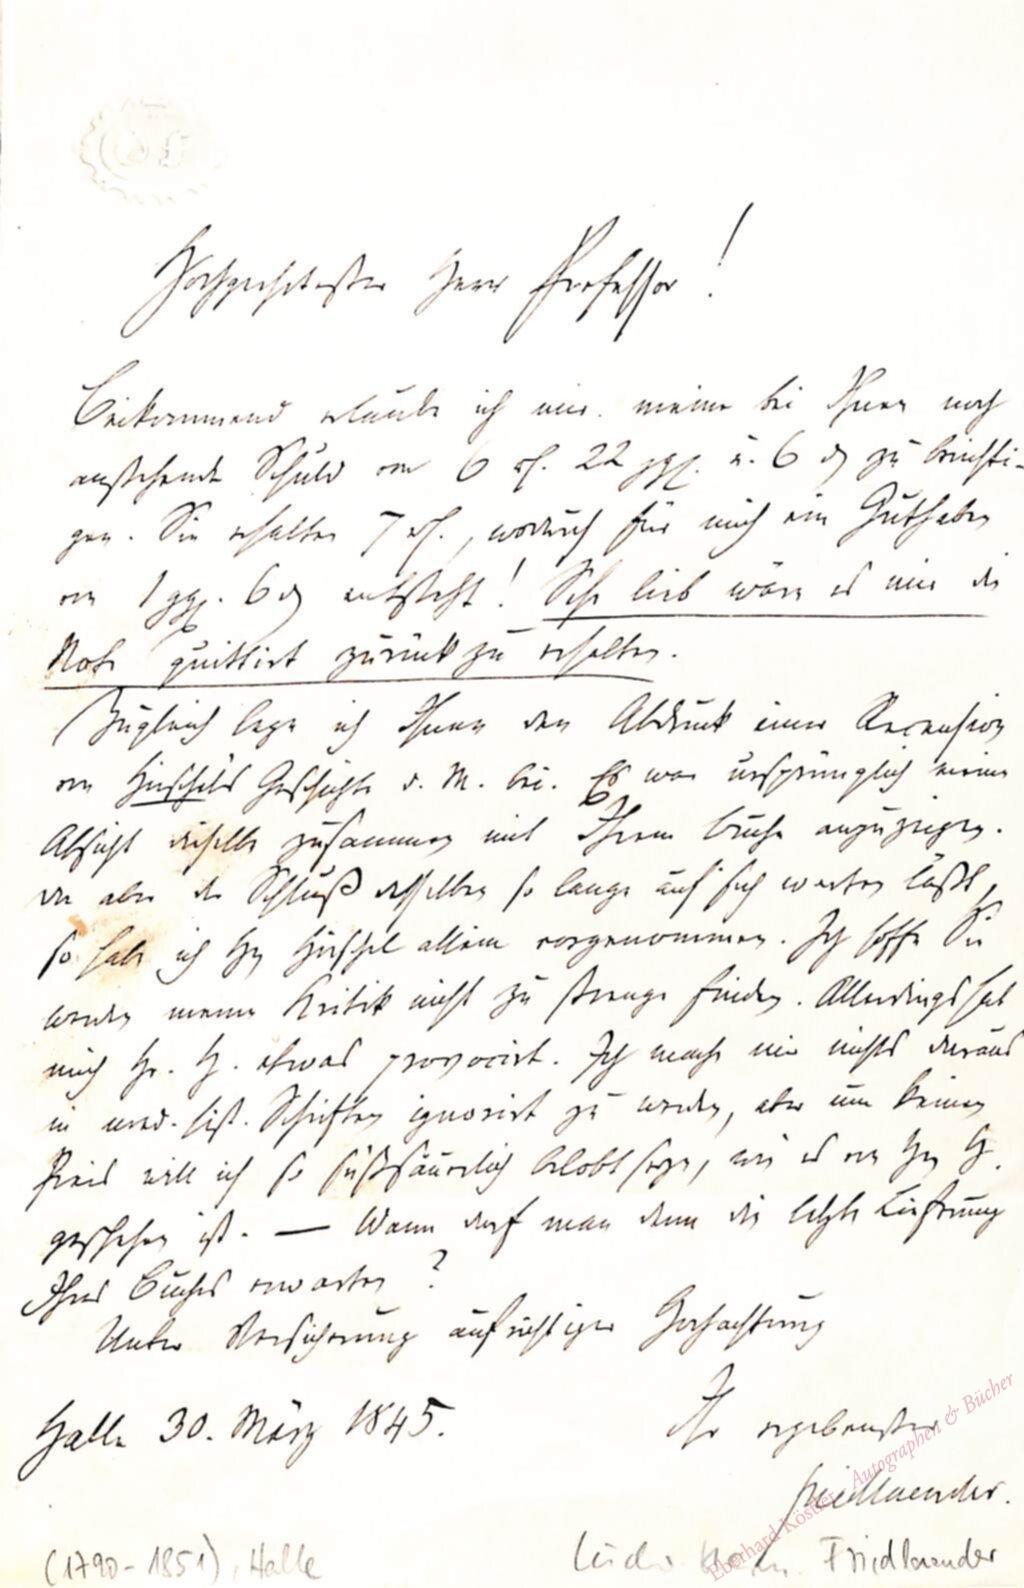 Hochgeehrtester Herr Professor!
Beikommend erlaube ich mir meine bei Ihnen noch
anstehende Schuld von 6 rℓ. 22 ggr. u. 6 ₰ zu berichti-
gen. Sie erhalten 7 rℓ., wodurch für mich ein Guthaben
von 1 ggr. 6 ₰ entsteht! Sehr lieb wäre es mir die
Note quittirt zurück zu erhalten.
Zugleich lege ich Ihnen den Abdruck einer Recension
von Hirschels Geschichte d. M. bei. Es war ursprünglich meine
Absicht dieselbe zusammen mit Ihrem Buche anzuzeigen.
da aber der Schluß desselben so lange auf sich warten läßt,
so habe ich Hn Hirschel allein vorgenommen. Ich hoffe Sie
werden meine Kritik nicht zu strenge finden. Allerdings hat
mich Hr. H. etwas provocirt. Ich mache mir nichts daraus
in med. hist. Schriften ignorirt zu werden, aber um keinen
Preis will ich so süßsäuerlich belobt seyn, wie es von Hn H.
geschehen ist. — Wann darf man denn die letzte Lieferung
Ihres Buches erwarten?
Unter Versicherung aufrichtiger Hochachtung
Ihr ergebenster
Halle 30. März 1845.
Friedlaender.
(1790-1851), Halle
Friedlaender
Eberhard Köstler Autographen & Bücher